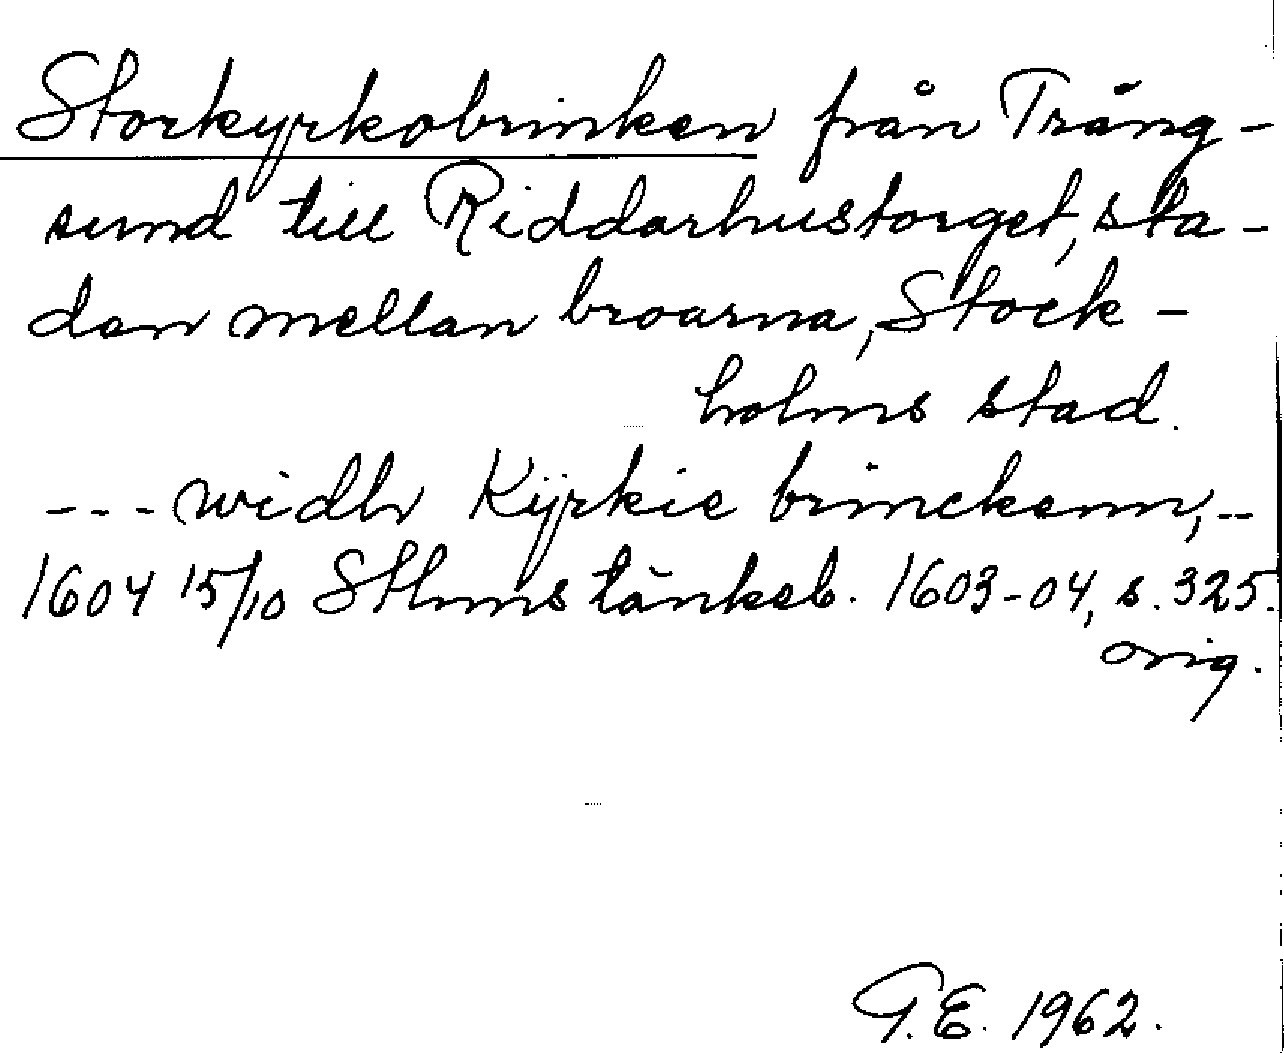 Storkyrkobrinken från Trång-
sund till Riddarhustorget, sta-
den mellan broarna, Stock-
holms stad.
--- widh Kÿrkie brinckenn, --
1604 15/10 Sthms tänkeb. 1603-04, s. 325.
orig.
G.E. 1962.